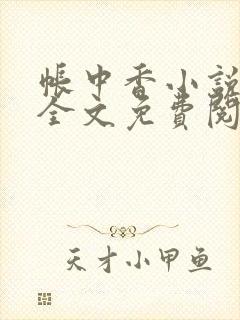 帐中香小説
全文免費閱
天才小甲鱼